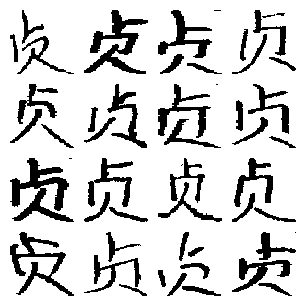 贞贞贞贞
贞贞贞贞
贞贞贞贞
贞贞贞贞